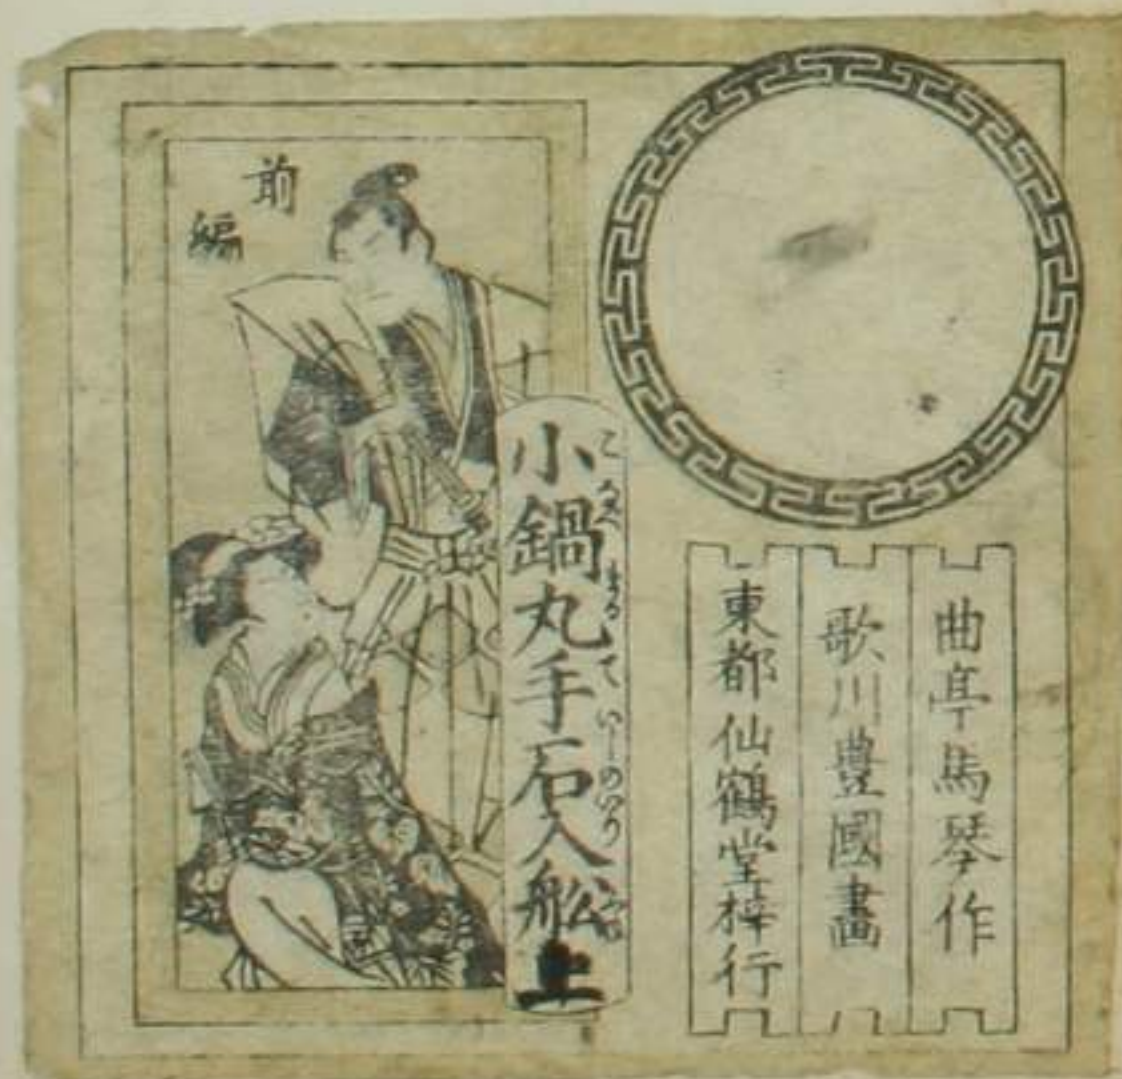 曲亭馬琴作
歌川豊國畫
東都仙鶴堂梓行
小鍋丸手石入船上
こなべまるていしのいりふね
前
編